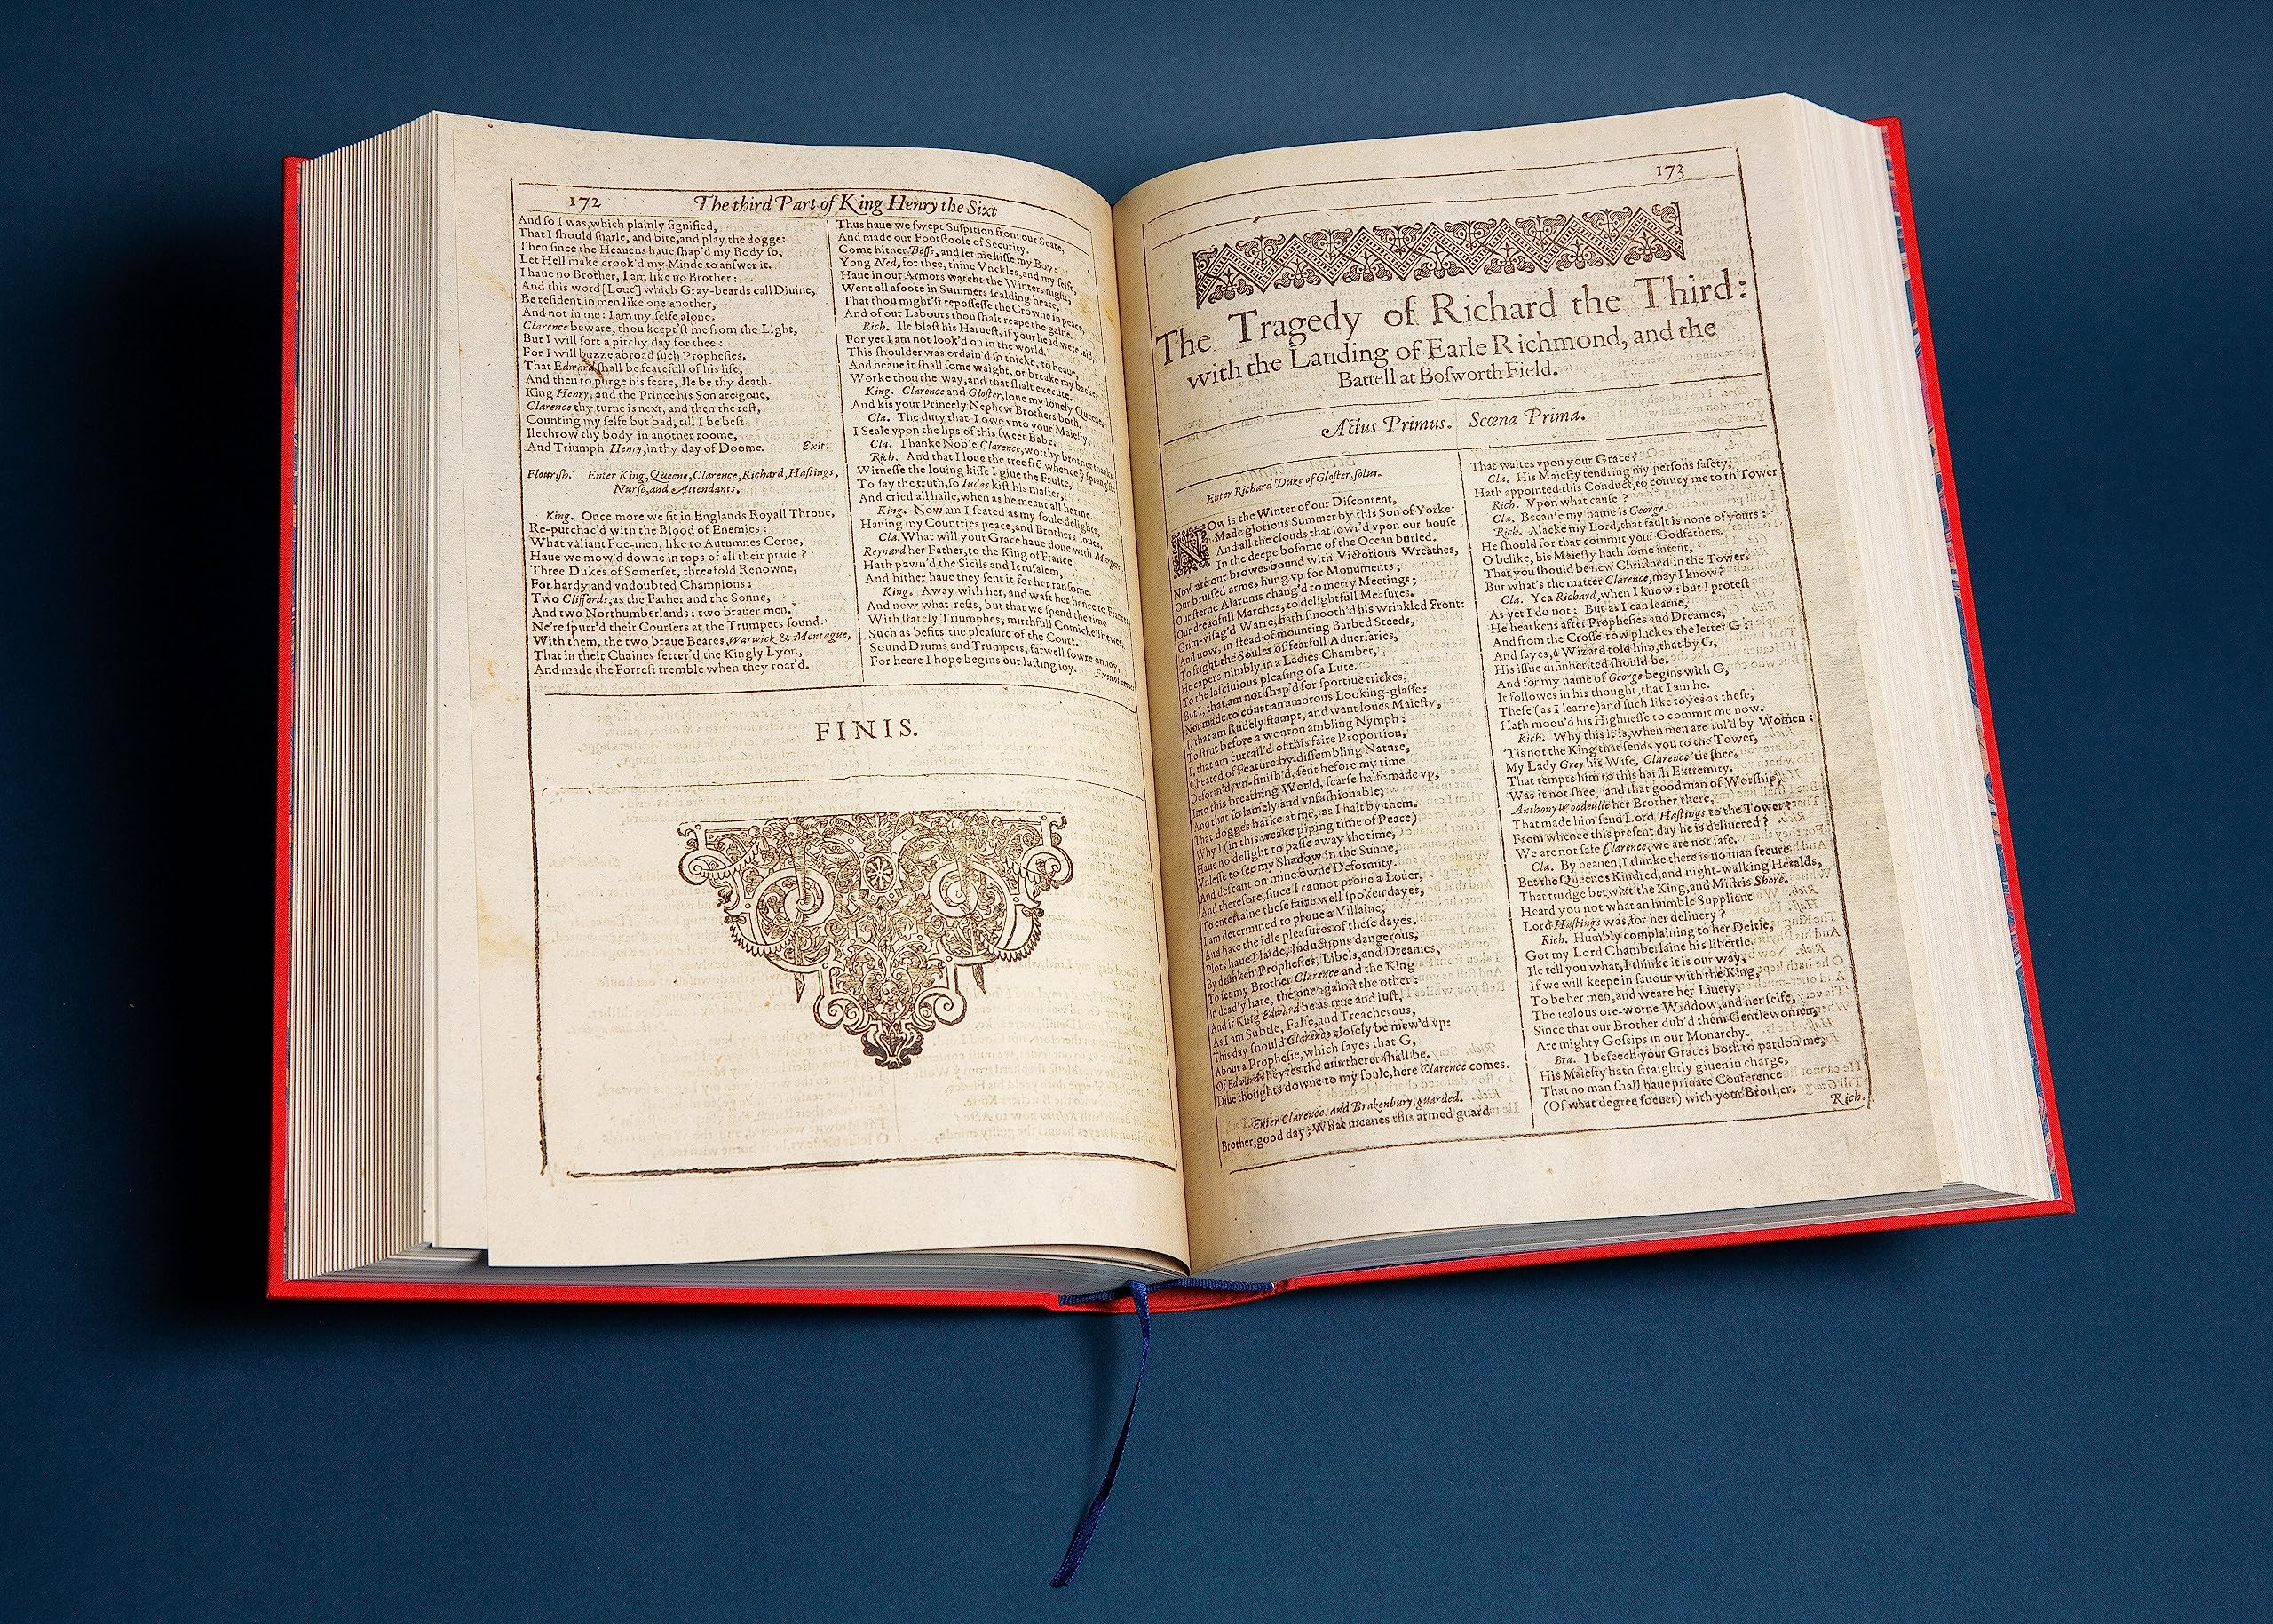 172
The third Part of King Henry the Sixt
And ſo I was, which plainly ſignified,
That I ſhould ſnarle, and bite, and play the dogge:
Then ſince the Heauens haue ſhap'd my Body ſo,
Let Hell make crook'd my Minde to anſwer it.
I haue no Brother, I am like no Brother:
And this word [Loue] which Gray-beards call Diuine,
Be reſident in men like one another,
And not in me: I am my ſelfe alone.
Clarence beware, thou keept'ſt me from the Light,
But I will ſort a pitchy day for thee:
For I will buzze abroad ſuch Propheſies,
That Edward ſhall be fearefull of his life,
And then to purge his feare, Ile be thy death.
King Henry, and the Prince his Son are gone,
Clarence thy turne is next, and then the reſt,
Counting my ſelfe but bad, till I be beſt.
Ile throw thy body in another roome,
And Triumph Henry, in thy day of Doome. Exit.
Flouriſh. Enter King, Queene, Clarence, Richard, Haſtings,
Nurſe, and Attendants.
King. Once more we ſit in Englands Royall Throne,
Re-purchac'd with the Blood of Enemies:
What valiant Foe-men, like to Autumnes Corne,
Haue we mow'd downe in tops of all their pride?
Three Dukes of Somerſet, threefold Renowne,
For hardy and vndoubted Champions:
Two Cliffords, as the Father and the Sonne,
And two Northumberlands: two brauer men,
Ne're ſpurr'd their Courſers at the Trumpets ſound.
With them, the two braue Beares, Warwick & Montague,
That in their Chaines fetter'd the Kingly Lyon,
And made the Forreſt tremble when they roar'd.
Thus haue we ſwept Suſpition from our Seate,
And made our Footſtoole of Security.
Come hither Beſſe, and let me kiſſe my Boy:
Yong Ned, for thee, thine Vnckles, and my ſelfe,
Haue in our Armors watcht the Winters night,
Went all afoote in Summers ſcalding heate,
That thou might'ſt repoſſeſſe the Crowne in peace,
And of our Labours thou ſhalt reape the gaine.
Rich. Ile blaſt his Harueſt, if your head were laid,
For yet I am not look'd on in the world.
This ſhoulder was ordain'd ſo thicke, to heaue,
And heaue it ſhall ſome waight, or breake my backe,
Worke thou the way, and that ſhalt execute.
King. Clarence and Gloſter, loue my louely Queene,
And kis your Princely Nephew Brothers both.
Cla. The duty that I owe vnto your Maieſty,
I Seale vpon the lips of this ſweet Babe.
Cla. Thanke Noble Clarence, worthy brother thanks.
Rich. And that I loue the tree frō whence ÿ ſprang'ſt:
Witneſſe the louing kiſſe I giue the Fruite,
To ſay the truth, ſo Iudas kiſt his maſter,
And cried all haile, when as he meant all harme.
King. Now am I ſeated as my ſoule delights,
Hauing my Countries peace, and Brothers loues.
Cla. What will your Grace haue done with Margaret,
Reynard her Father, to the King of France
Hath pawn'd the Sicils and Ieruſalem,
And hither haue they ſent it for her ranſome.
King. Away with her, and waft her hence to France:
And now what reſts, but that we ſpend the time
With ſtately Triumphes, mirthfull Comicke ſhewes,
Such as befits the pleaſure of the Court.
Sound Drums and Trumpets, farwell ſowre annoy,
For heere I hope begins our laſting ioy. Exeunt omnes
FINIS.
173
The Tragedy of Richard the Third:
with the Landing of Earle Richmond, and the
Battell at Boſworth Field.
Actus Primus. Scœna Prima.
Enter Richard Duke of Gloſter, ſolus.
NOw is the Winter of our Diſcontent,
Made glorious Summer by this Son of Yorke:
And all the clouds that lowr'd vpon our houſe
In the deepe boſome of the Ocean buried.
Now are our browes bound with Victorious Wreathes,
Our bruiſed armes hung vp for Monuments;
Our ſterne Alarums chang'd to merry Meetings;
Our dreadfull Marches, to delightfull Meaſures.
Grim-viſag'd Warre, hath ſmooth'd his wrinkled Front:
And now, in ſtead of mounting Barbed Steeds,
To fright the Soules of fearfull Aduerſaries,
He capers nimbly in a Ladies Chamber,
To the laſciuious pleaſing of a Lute.
But I, that am not ſhap'd for ſportiue trickes,
Nor made to court an amorous Looking-glaſſe:
I, that am Rudely ſtampt, and want loues Maieſty,
To ſtrut before a wonton ambling Nymph:
I, that am curtail'd of this faire Proportion,
Cheated of Feature by diſſembling Nature,
Deform'd, vn-finiſh'd, ſent before my time
Into this breathing World, ſcarſe halfe made vp,
And that ſo lamely and vnfaſhionable,
That dogges barke at me, as I halt by them.
Why I (in this weake piping time of Peace)
Haue no delight to paſſe away the time,
Vnleſſe to ſee my Shadow in the Sunne,
And deſcant on mine owne Deformity.
And therefore, ſince I cannot proue a Louer,
To entertaine theſe faire well ſpoken dayes,
I am determined to proue a Villaine,
And hate the idle pleaſures of theſe dayes.
Plots haue I laide, Inductions dangerous,
By drunken Propheſies, Libels, and Dreames,
To ſet my Brother Clarence and the King
In deadly hate, the one againſt the other:
And if King Edward be as true and iuſt,
As I am Subtle, Falſe, and Treacherous,
This day ſhould Clarence cloſely be mew'd vp:
About a Propheſie, which ſayes that G,
Of Edwards heyres the murtherer ſhall be.
Diue thoughts downe to my ſoule, here Clarence comes.
Enter Clarence, and Brakenbury, guarded.
Brother, good day: What meanes this armed guard
That waites vpon your Grace?
Cla. His Maieſty tendring my perſons ſafety,
Hath appointed this Conduct, to conuey me to th'Tower
Rich. Vpon what cauſe?
Cla. Becauſe my name is George.
Rich. Alacke my Lord, that fault is none of yours:
He ſhould for that commit your Godfathers.
O belike, his Maieſty hath ſome intent,
That you ſhould be new Chriſtned in the Tower.
But what's the matter Clarence, may I know?
Cla. Yea Richard, when I know: but I proteſt
As yet I do not: But as I can learne,
He hearkens after Propheſies and Dreames,
And from the Croſſe-row pluckes the letter G:
And ſayes, a Wizard told him, that by G,
His iſſue diſinherited ſhould be.
And for my name of George begins with G,
It followes in his thought, that I am he.
Theſe (as I learne) and ſuch like toyes as theſe,
Hath moou'd his Highneſſe to commit me now.
Rich. Why this it is, when men are rul'd by Women:
'Tis not the King that ſends you to the Tower,
My Lady Grey his Wife, Clarence 'tis ſhee,
That tempts him to this harſh Extremity.
Was it not ſhee, and that good man of Worſhip,
Anthony Woodeulle her Brother there,
That made him ſend Lord Haſtings to the Tower?
From whence this preſent day he is deliuered?
We are not ſafe Clarence, we are not ſafe.
Cla. By heauen, I thinke there is no man ſecure
But the Queenes Kindred, and night-walking Heralds,
That trudge betwixt the King, and Miſtris Shore.
Heard you not what an humble Suppliant
Lord Haſtings was, for her deliuery?
Rich. Humbly complaining to her Deitie,
Got my Lord Chamberlaine his libertie.
Ile tell you what, I thinke it is our way,
If we will keepe in fauour with the King,
To be her men, and weare her Liuery.
The iealous ore-worne Widdow, and her ſelfe,
Since that our Brother dub'd them Gentlewomen,
Are mighty Goſsips in our Monarchy.
Bra. I beſeech your Graces both to pardon me,
His Maieſty hath ſtraightly giuen in charge,
That no man ſhall haue priuate Conference
(Of what degree ſoeuer) with your Brother.
Rich.